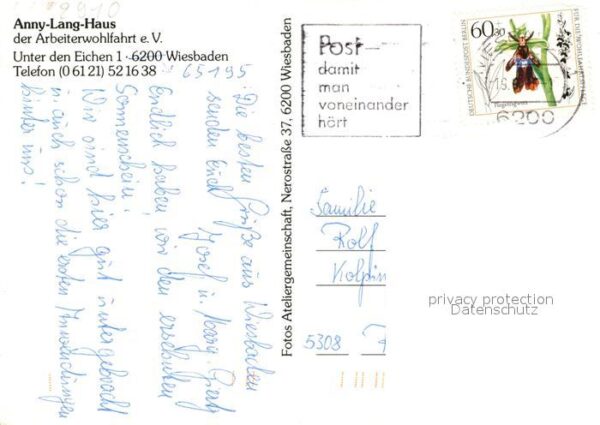 Anny-Lang-Haus
der Arbeiterwohlfahrt e. V.
Unter den Eichen 1 · 6200 Wiesbaden
Telefon (0 61 21) 52 16 38
65195
Die besten Grüße aus Wiesbaden
senden Euch Josef u.
Endlich haben wir den ersehnten
Sonnenschein.
Wir sind hier gut untergebracht
u. auch schon die ersten Anwendungen
hinter uns!
Fotos Ateliergemeinschaft, Nerostraße 37, 6200 Wiesbaden
Post
damit
man
voneinander
hört
60+30
DEUTSCHE BUNDESPOST BERLIN
FÜR DIE WOHLFAHRTSPFLEGE
6200
Familie
Rolf
Kolpin
5308
privacy protection
Datenschutz